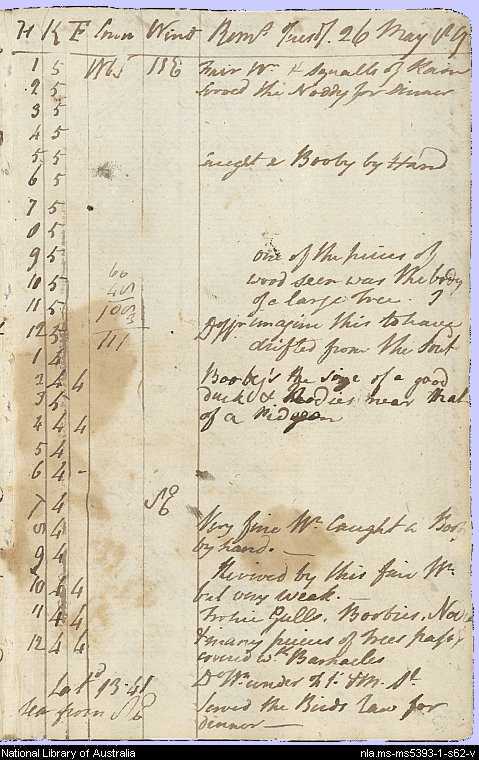 H K F Courses Wind Rem.ks Tuesd. 26 May 89
1 5 WbS NE Fair Wr. & Squalls of Rain
2 5 served the Noddy for dinner
3 5
4 5
5 5 Caught a Booby by Hand
6 5
7 5
8 5
9 5 one of the pieces of
10 5 wood seen was the body
11 5 of a large tree.
12 5 111 imagine this to have
drifted from the
1 4
2 4 4 Booby's the size of a good
3 5 duck & Nodies near that
4 4 4 of a Pidgeon
5 4
6 4 -
7 4 SE
8 4 Very fine Wr. Caught a Boob
9 4 by hand. —
10 4 4 Revived by this fair Wr.
but very weak. —
11 4 4 Gulls, Boobies, No
12 4 4 & many pieces of trees pass
covered wth. Barnacles
Latd. 13.41 Do. Wr. under
Sea from SE served the Birds raw for
dinner —
National Library of Australia
nla.ms-ms5393-1-s62-v